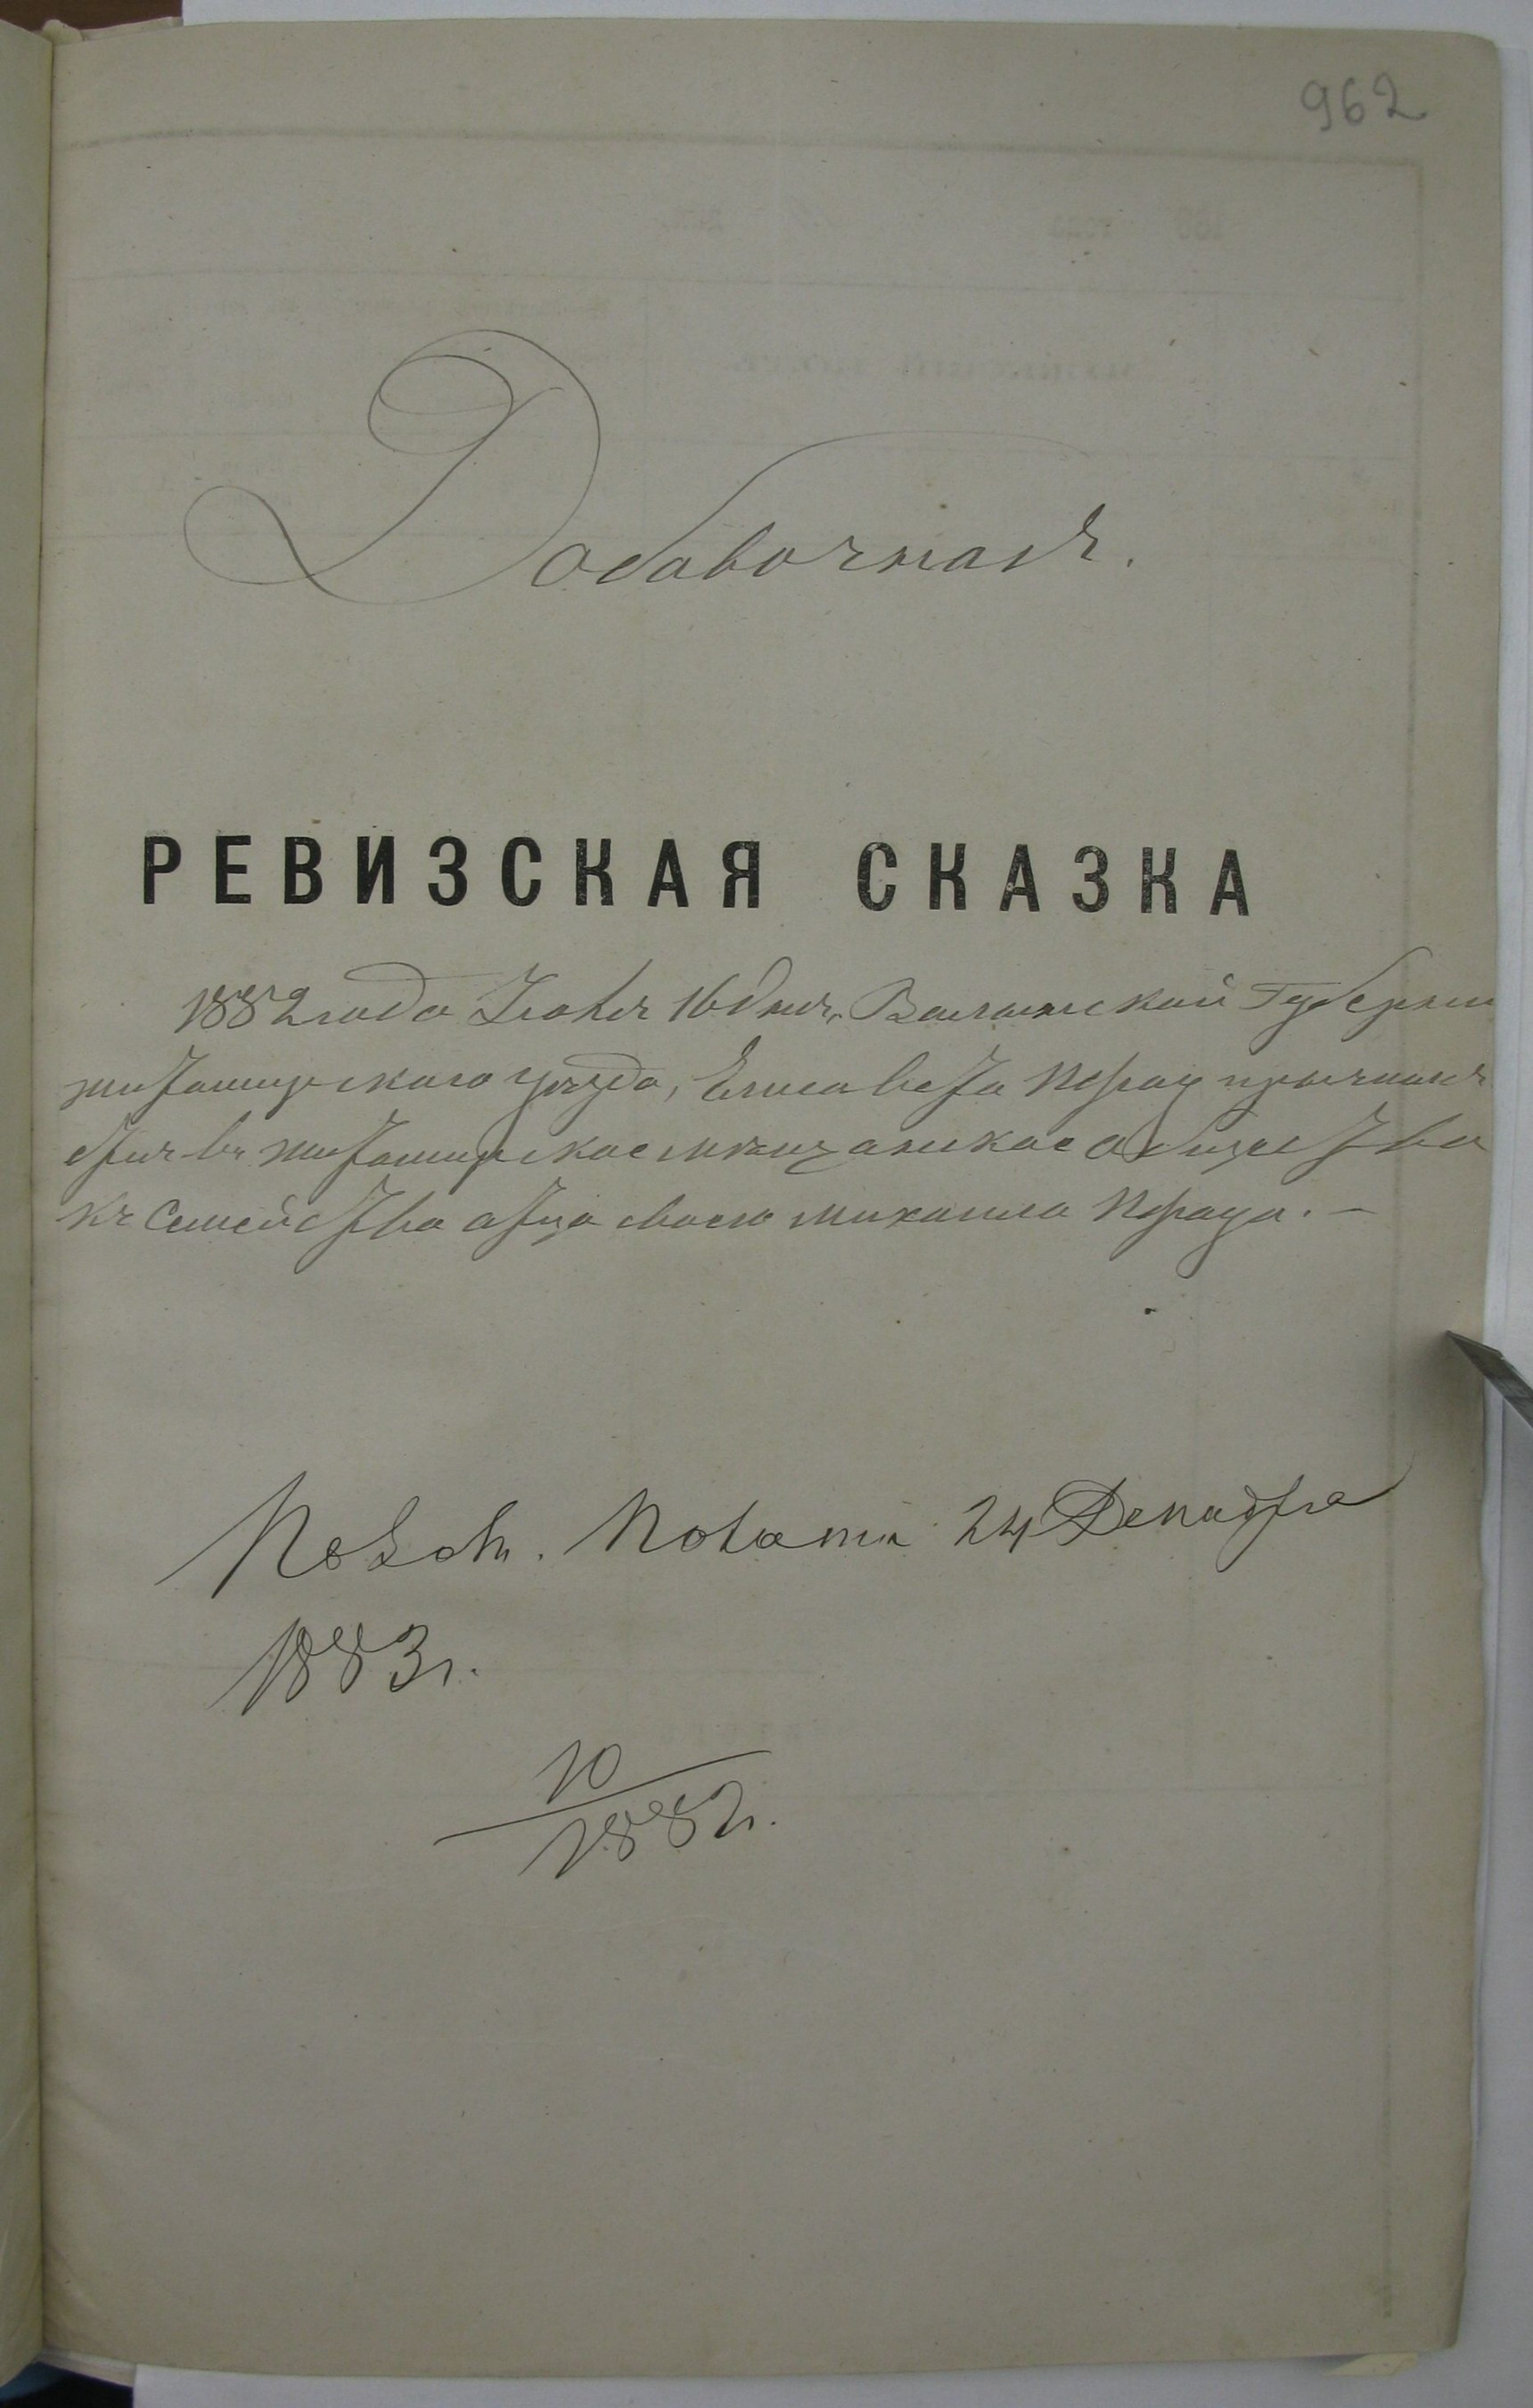 962
Добавочная.
РЕВИЗСКАЯ СКАЗКА
1882 года Июня 16 дня, Волынской Губернии
житомирскаго уезда, Елисавета
въ житомирское мещанское общество
къ Семейству отца своего михаила
24 Декабря
1883 г.
10
1882 г.